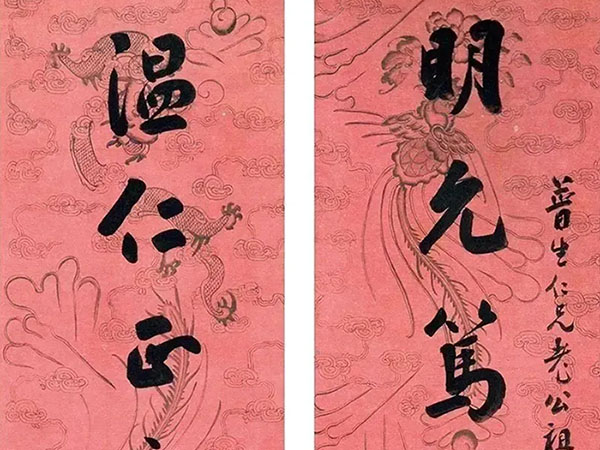 明允篤
普生仁兄老公祖
温仁正